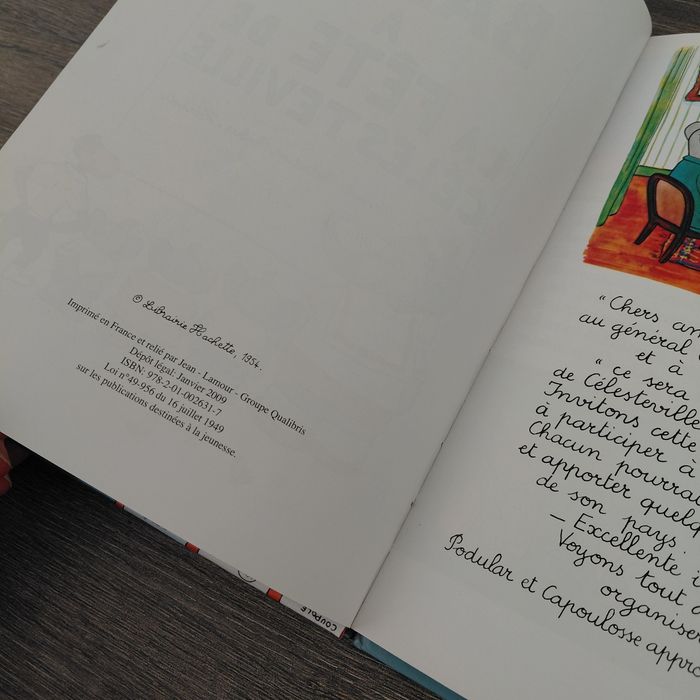 © Librairie Hachette, 1954.
Imprimé en France et relié par Jean - Lamour - Groupe Qualibris
Dépôt légal: Janvier 2009
ISBN: 978-2-01-002631-7
Loi n°49-956 du 16 juillet 1949
sur les publications destinées à la jeunesse.
COUPOLE
“ Chers
au général
et à
“ ce sera
de Célesteville
Invitons cette
à participer à
Chacun pourra
et apporter
de son pays.
– Excellente
Voyons tout
organiser
Podular et Capoulosse